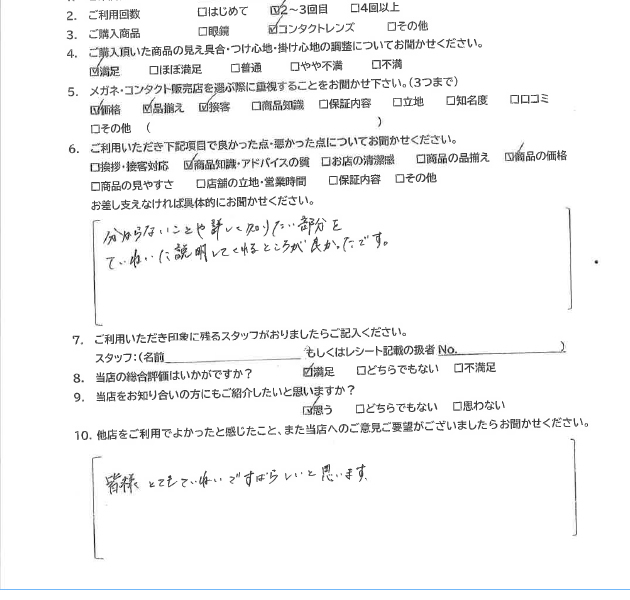 2. ご利用回数 □はじめて ☑2～3回目 □4回以上
3. ご購入商品 □眼鏡 ☑コンタクトレンズ □その他
4. ご購入頂いた商品の見え具合・つけ心地・掛け心地の調整についてお聞かせください。
☑満足 □ほぼ満足 □普通 □やや不満 □不満
5. メガネ・コンタクト販売店を選ぶ際に重視することをお聞かせ下さい。(3つまで)
☑価格 ☑品揃え ☑接客 □商品知識 □保証内容 □立地 □知名度 □口コミ
□その他 ( )
6. ご利用いただき下記項目で良かった点・悪かった点についてお聞かせください。
□挨拶・接客対応 ☑商品知識・アドバイスの質 □お店の清潔感 □商品の品揃え ☑商品の価格
□商品の見やすさ □店舗の立地・営業時間 □保証内容 □その他
お差し支えなければ具体的にお聞かせください。
分からないことや詳しく知りたい部分を
ていねいに説明してくれるところが良かったです。
7. ご利用いただき印象に残るスタッフがおりましたらご記入ください。
スタッフ:(名前 もしくはレシート記載の扱者 No. )
8. 当店の総合評価はいかがですか? ☑満足 □どちらでもない □不満足
9. 当店をお知り合いの方にもご紹介したいと思いますか?
☑思う □どちらでもない □思わない
10. 他店をご利用でよかったと感じたこと、また当店へのご意見ご要望がございましたらお聞かせください。
皆様とてもていねいですばらしいと思います。